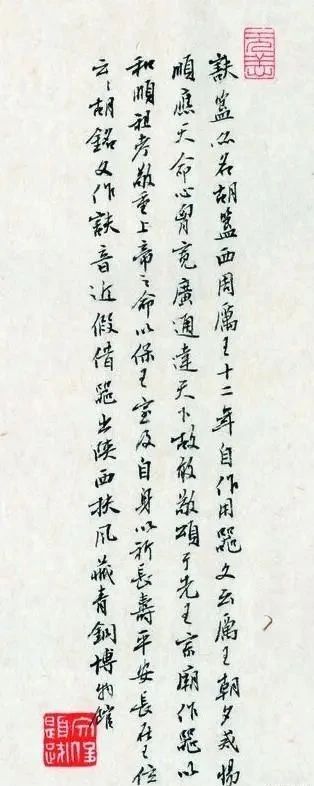 㝬簋亦名胡簋西周厲王十二年自作用器文云厲王朝夕戒惕
順應天命心胷寬廣通達天下故敢敬頌于先王宗廟作器以
和順祖考敬重上帝之命以保王室及自身以祈長壽平安長在王位
云云胡銘文作㝬音近假借器出陝西扶風藏青銅博物館